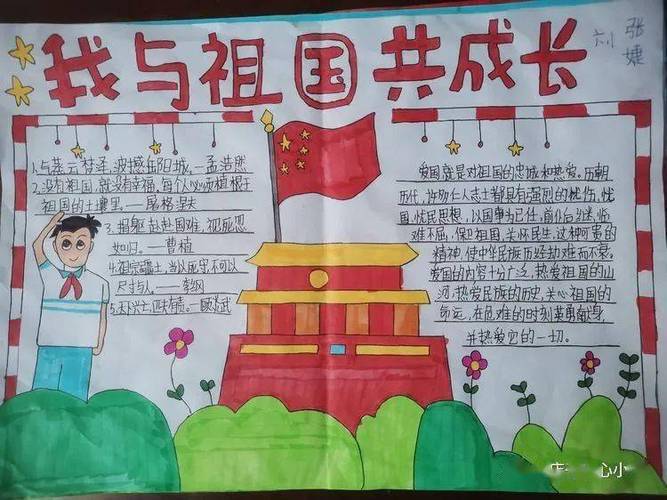 我与祖国共成长
张婕
1.与蒸云梦泽,波撼岳阳城,—孟浩然
2.没有祖国,就没有幸福,每个人必须植根于
祖国的土壤里。——屠格涅夫
3.捐躯赴赴国难,视死忽
如归。——曹植
4.祖宗疆土,当以死守,不可以
尺寸与人。——李纲
5.天下兴亡,匹夫有责。—顾炎武
爱国就是对祖国的忠诚和热爱。历朝
历代,许多仁人志士都具有强烈的忧伤,忧
国,忧民思想,以国事为已任,前仆后继,临
难不屈,保卫祖国,关怀民生,这种可贵的
精神,使中华民族历经劫难而不衰。
爱国的内容十分广泛,热爱祖国的山
河,热爱民族的历史,关心祖国的
命运,在危难的时刻英勇献身
并热爱它的一切。
心小